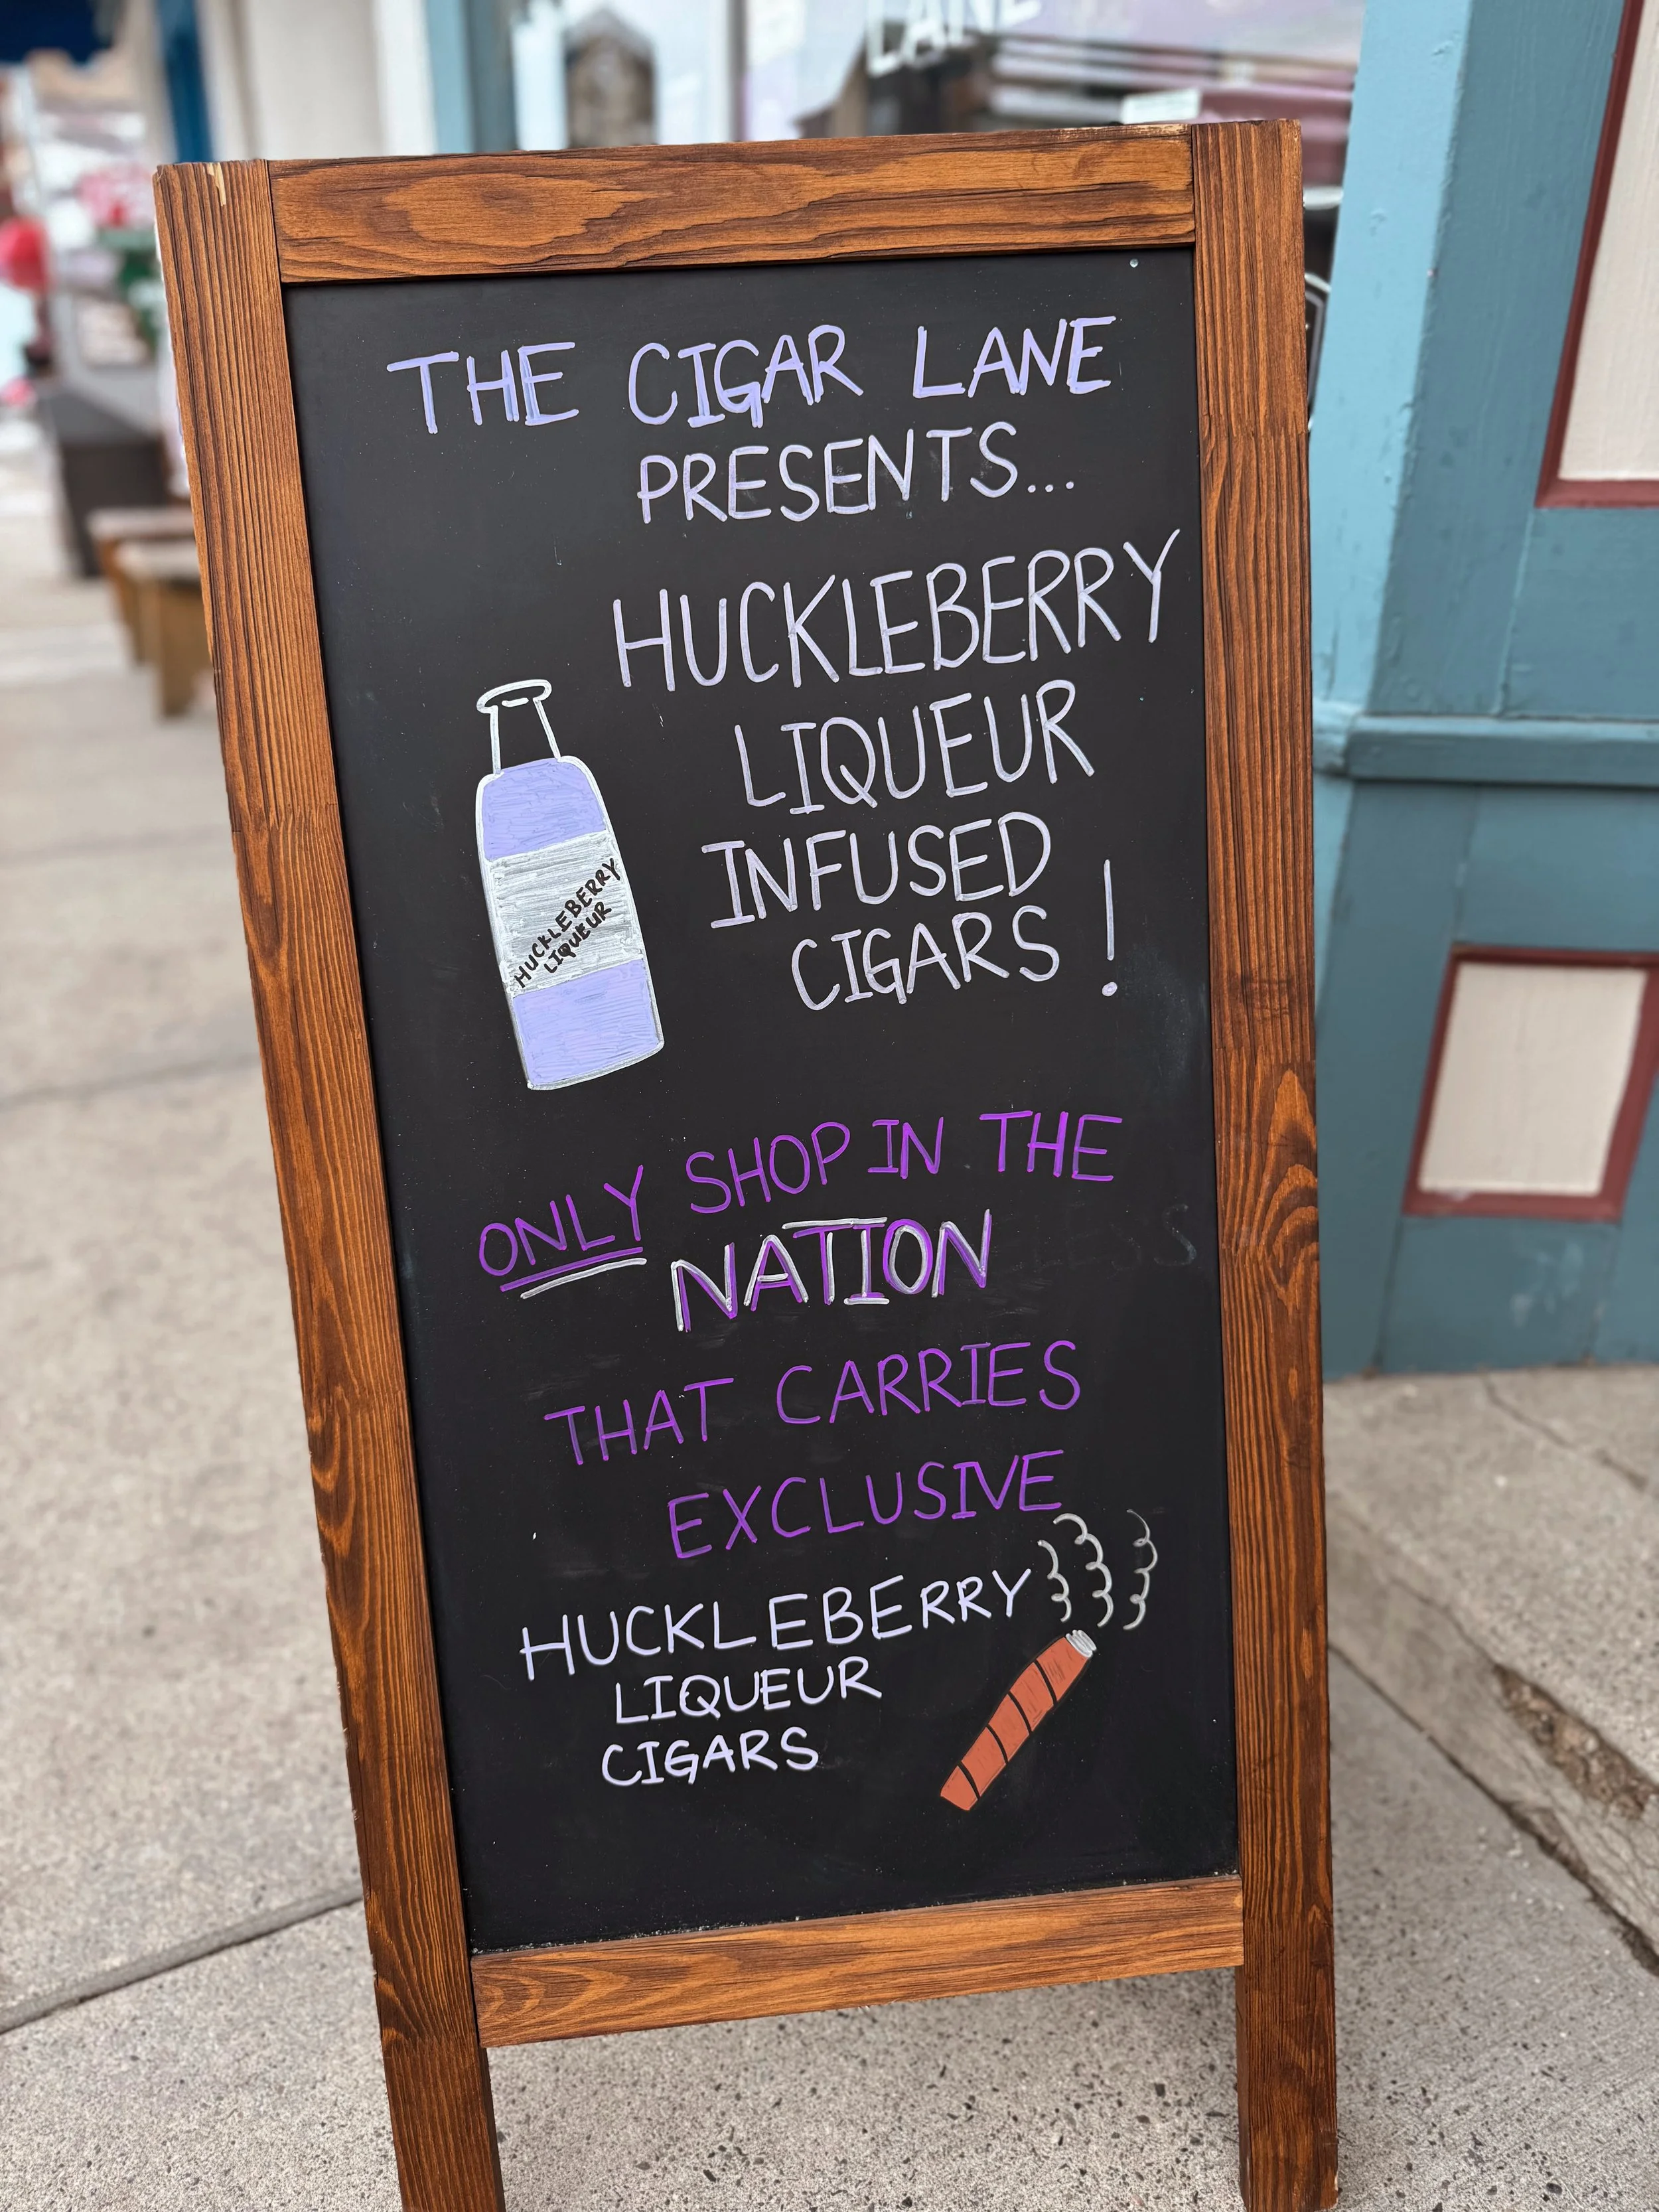 LANE
THE CIGAR LANE
PRESENTS...
HUCKLEBERRY
LIQUEUR
INFUSED
CIGARS!
HUCKLEBERRY
LIQUEUR
ONLY SHOP IN THE
NATION
THAT CARRIES
EXCLUSIVE
HUCKLEBERRY
LIQUEUR
CIGARS